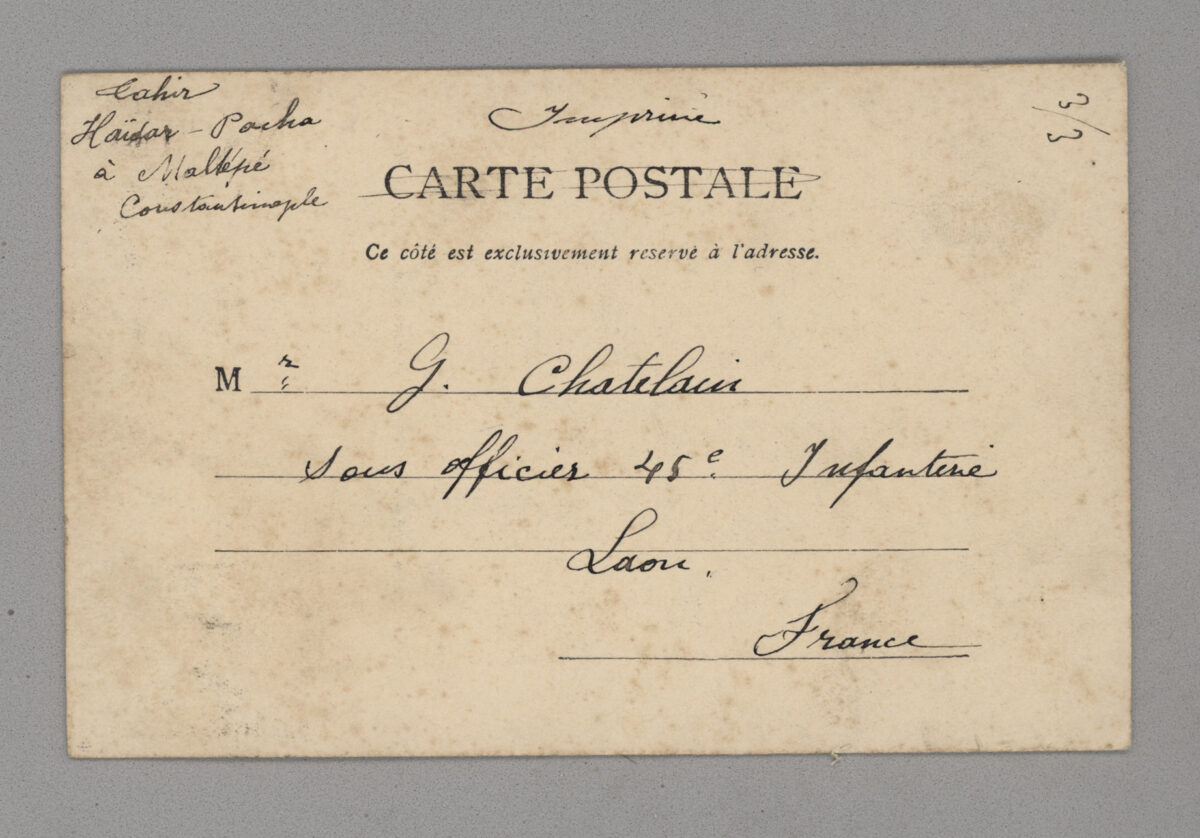 Tahir
Haïdar - Pacha
à Maltépé
Constantinople
Imprimé
CARTE POSTALE
Ce côté est exclusivement reservé à l'adresse.
M r G. Chatelain
sous officier 45e Infanterie
Laon.
France